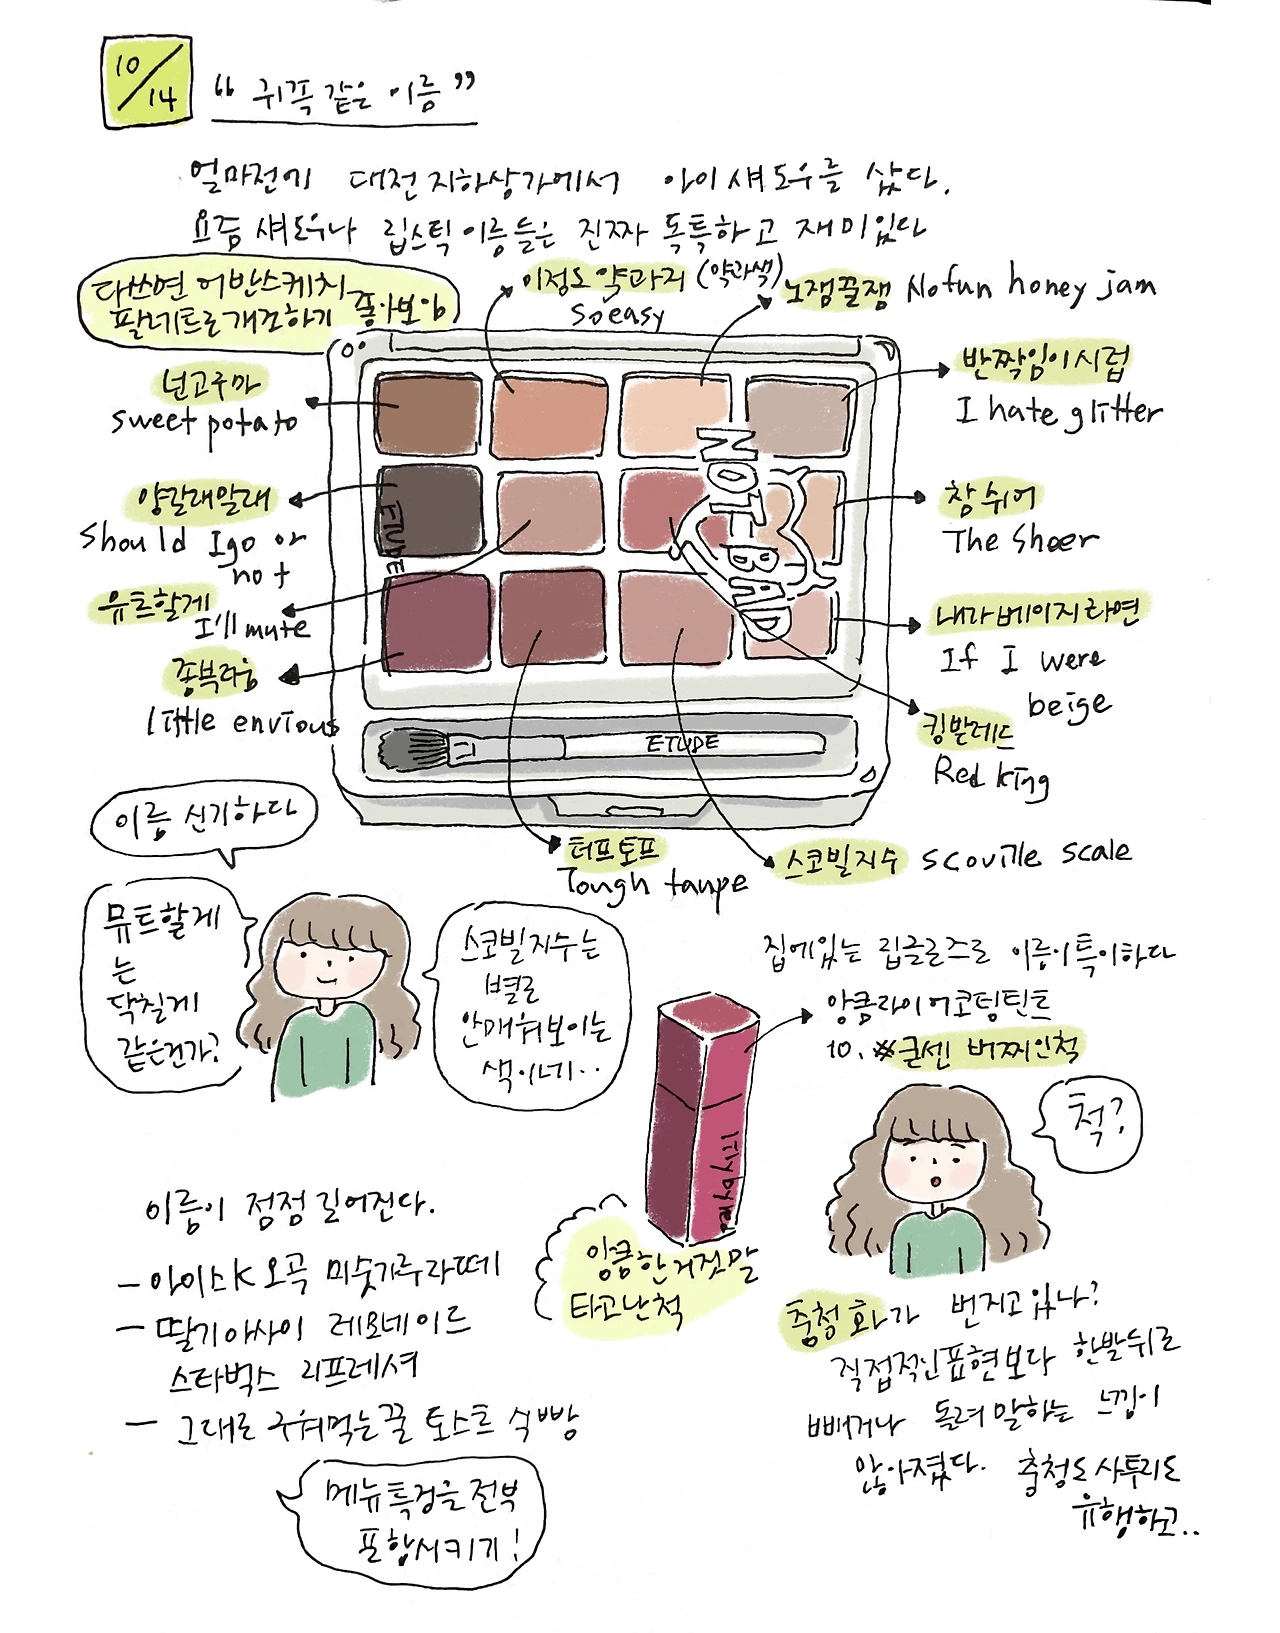 10/14
“귀쫑 같은 이름”
얼마전에 대전 지하상가에서 아이섀도우를 샀다.
요즘 섀도우나 립스틱 이름들은 진짜 독특하고 재미있다
다쓰면 어반스케치
팔레트로 개조하기 좋아보임
이정도 약과지 (약과색)
So easy
노잼꿀잼 No fun honey jam
넌고구마
sweet potato
반짝임이시럽
I hate glitter
양갈래말래
Should I go or
not
참 쉬어
The Sheer
뮤트할게
I'll mute
내가베이지라면
If I were
beige
좀부러움
little envious
킹받레드
Red king
NOT-BAD
ETUDE
ETUDE
터프토프
Tough taupe
스코빌지수 scoville scale
이름 신기하다
뮤트할게
는
닥칠게
같은건가?
스코빌지수는
별로
안매워보이는
색이네..
집에있는 립글로즈로 이름이 특이하다
앙큼라이어코팅틴트
10. #글쎈 버찌인척
척?
앙큼한 거짓말
타고난척
이름이 점점 길어진다.
- 아이스K오곡 미숫가루라떼
- 딸기아사이 레모네이드
스타벅스 리프레셔
- 그대로 구워먹는꿀 토스트 식빵
메뉴특징을 전부
포함시키기!
충청화가 번지고있나?
직접적인표현보다 한발뒤로
빼거나 돌려 말하는 느낌이
많아졌다. 충청도 사투리도
유행하고..